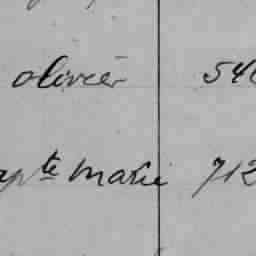 olivier 540
apte marie 712